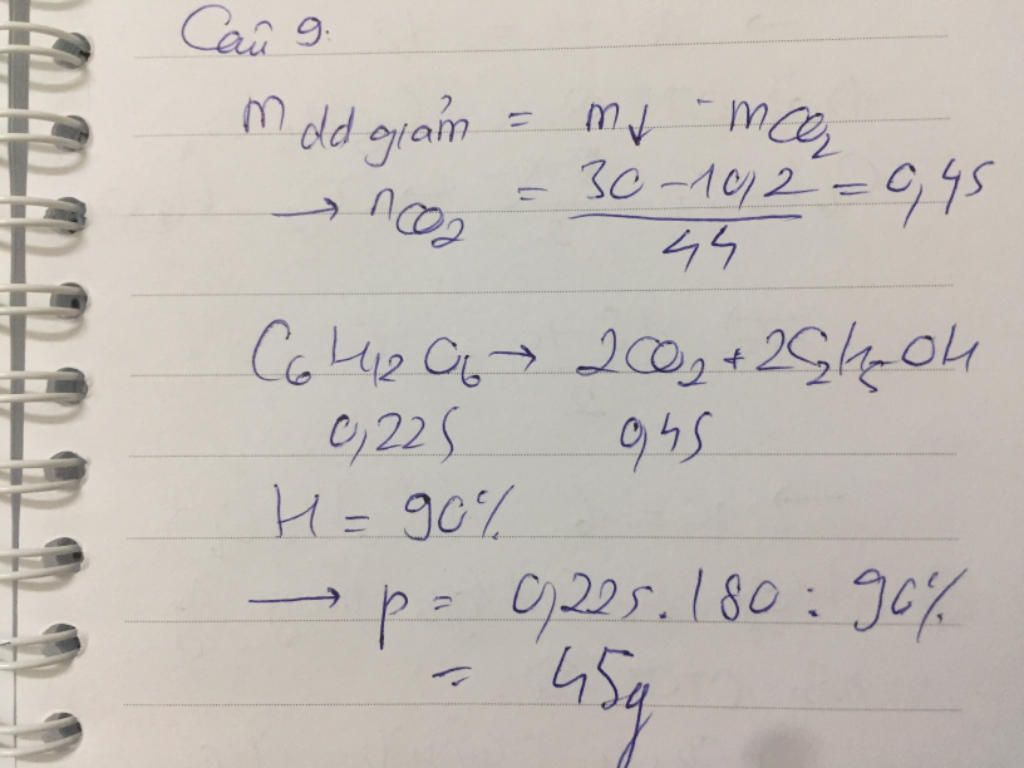 Câu 9:
m dd giảm = m↓ - mCO2
→ nCO2 = (30 - 10,2)/44 = 0,45
C6H12O6 → 2CO2 + 2C2H5OH
0,225 0,45
H = 90%
→ p = 0,225.180 : 90%
= 45g